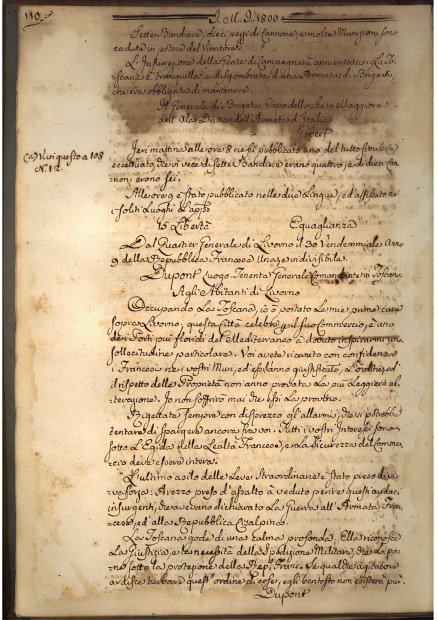 110.
I. M. D. 1800
Sette Bandiere, dieci pezzi di Cannone, e molte Munizioni sono
cadute in potere del Vincitore.
L'Insurezione della Gente di Campagna è annientata. La To-
scana è tranquilla, e sgombrata d'una Armata di Briganti,
che era obbligata di mantenere.
Il Generale di Brigata Capo dello Stato Maggiore
dell'Ala Dritta dell'Armata d'Italia
Jeri mattina alle ore 8 ne fù pubblicato uno del tutto simile
eccettuato, che in vece di Sette Bandiere erano quattro, e di dieci Can-
noni erono sei.
Ca) Vari questo a 108
N. 12.
Alle ore 9 è stato pubblicato nelle due Lingue, ed affisso ne
soliti Luoghi
15 Libertà Eguaglianza
Dal Quartier Generale di Livorno il 30 Vendemmiale Anno
9 della Repubblica Francese Una, e indivisibile.
Dupont Luogo Tenente Generale Comandante in Toscana
Agli Abitanti di Livorno
Occupando La Toscana, io ò portato Le mie prime cure
sopra Livorno, questa Città celebre p. il suo Commercio, e uno
dei Porti più floridi del Mediterraneo à dovuto inspirarmi una
sollecitudine particolare. Voi avete ricevuto con confidenza
i Francesi ne i vostri Muri, ed essi l'anno giustificato, L'ordine, ed
il rispetto delle Proprietà non anno provata La più Leggiera al-
terazione. Io non soffrirò mai che essi La provino.
Rigettate sempre con disprezzo gl'allarmi, che si potrebbe
tentare di spargere ancora frà voi. Tutti i vostri Interessi sono
sotto L'Egida della Lealtà Francese, e La Sicurezza del Comer-
cio deve essere intera.
L'ultimo asilo delle Leve Straordinarie è stato preso di vi-
va forza: Arezzo preso d'assalto à veduto perire quest'audaci
insurgenti, che avevano dichiarato La Guerra all'Armata Fran-
cese, ed alla Repubblica Cisalpina.
La Toscana gode di una calma profonda. Ella riconosce
La Giustizia, e la necessità della Spedizione Militare, che la po-
ne sotto la protezione della Rep. Franc. Se qualche agitatore
ardisce turbare quest'ordine di cose, egli bentosto non esisterà più
Dupont